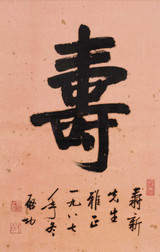 壽
壽新
先生
雅正
一九八七
年冬
啟功